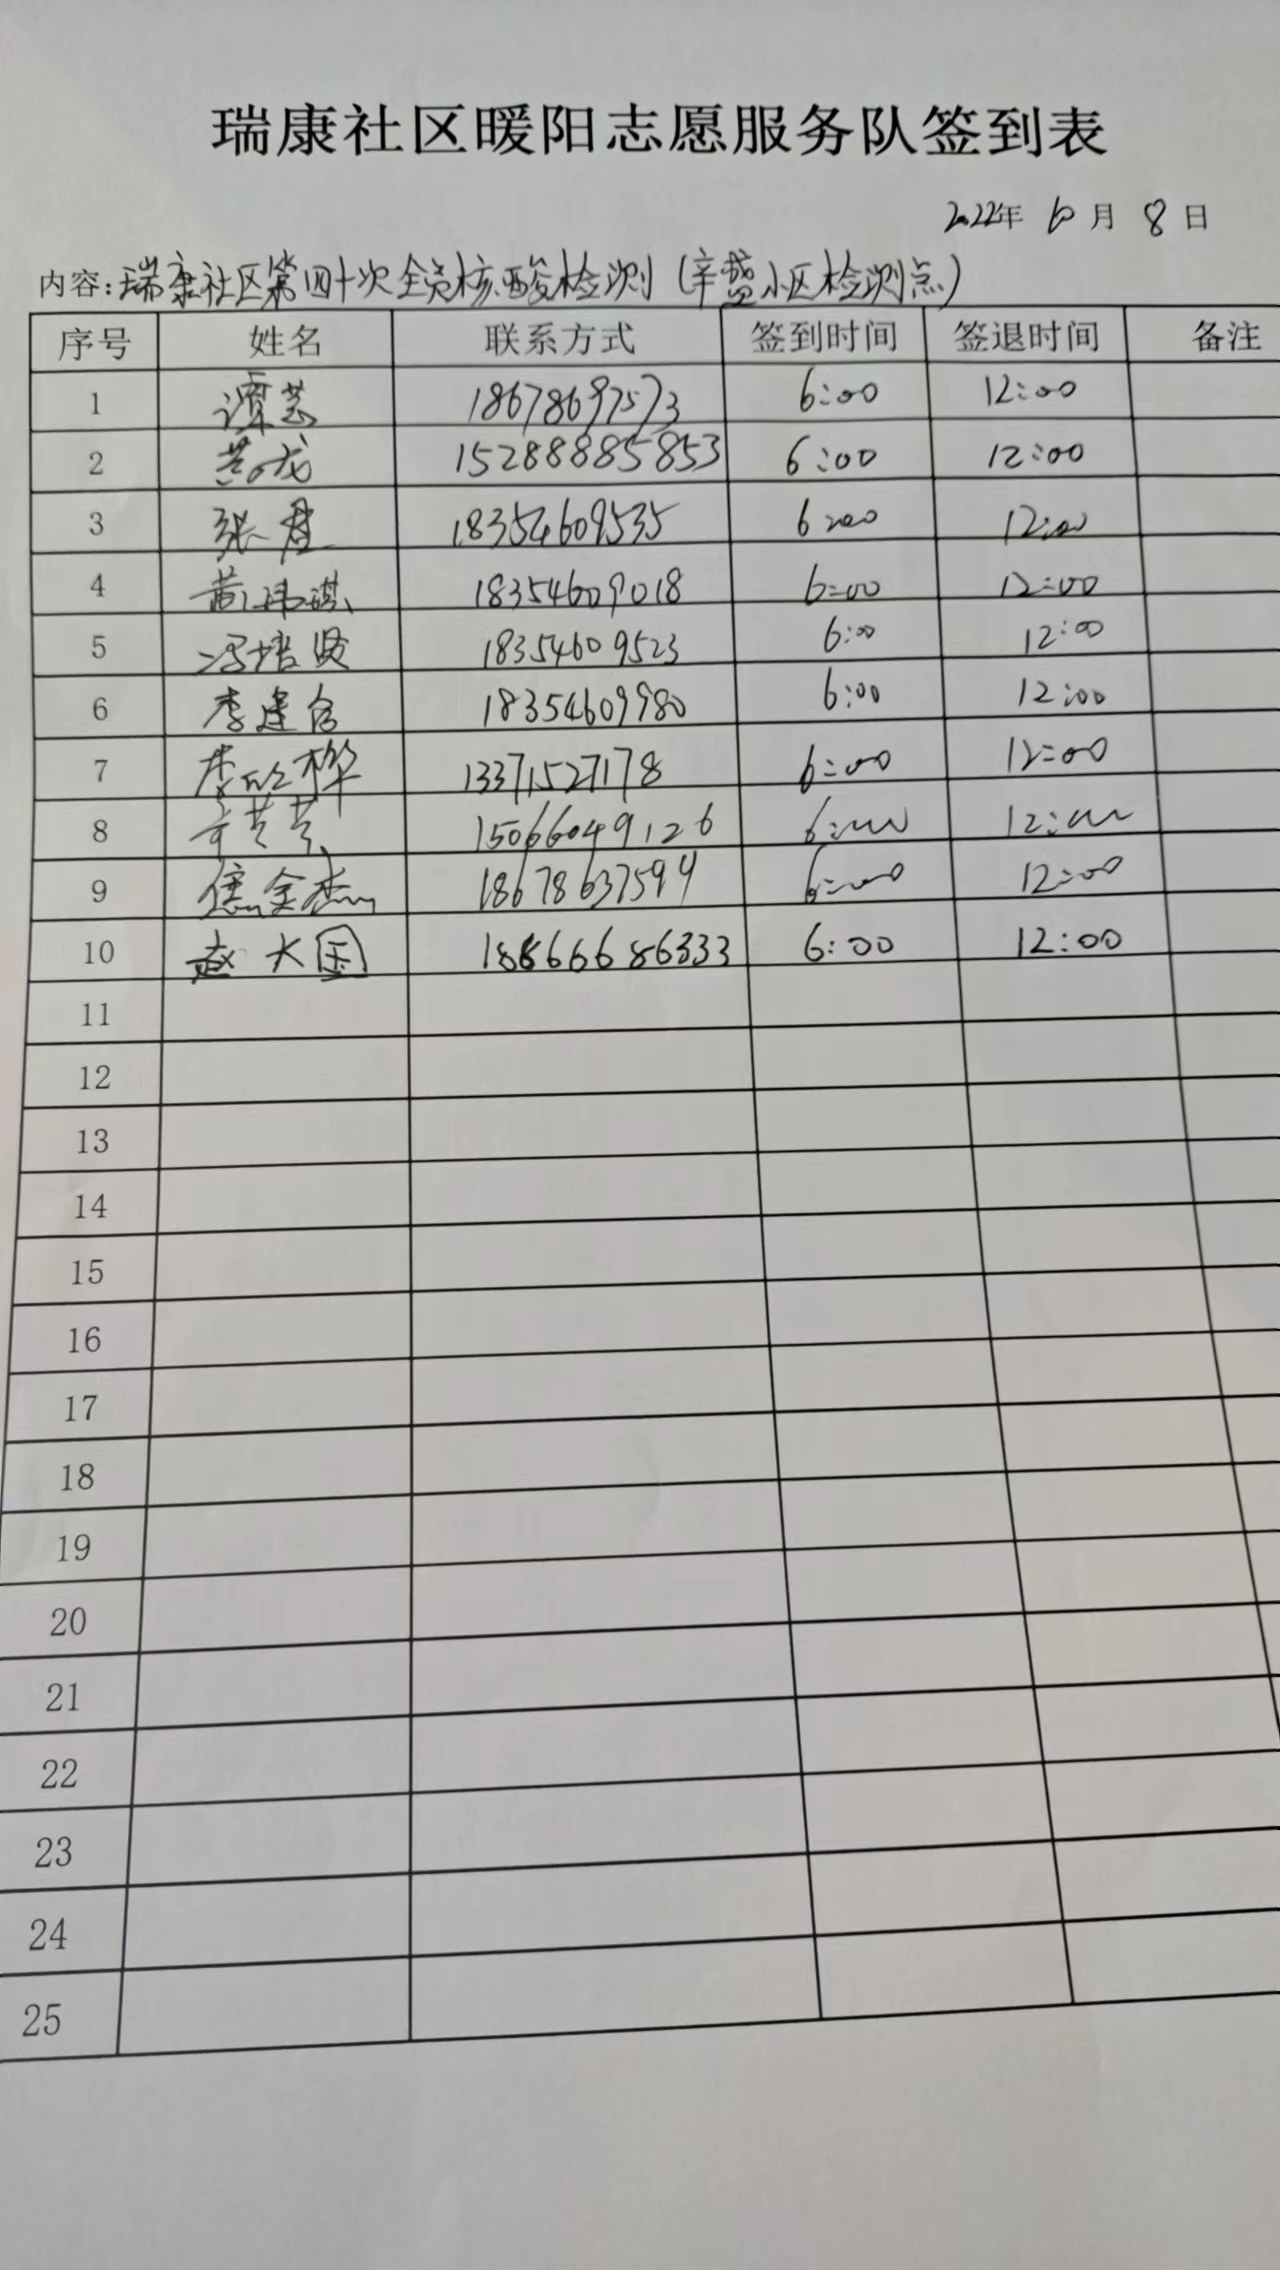 瑞康社区暖阳志愿服务队签到表
2022年 10月 8日
内容:瑞康社区第四十次全员核酸检测(辛盛小区检测点)
序号 姓名 联系方式 签到时间 签退时间 备注
1 谭芸 18678697573 6:00 12:00
2 龙 15288885853 6:00 12:00
3 张君 18354609535 6:00 12:00
4 黄玮祺 18354609018 6:00 12:00
5 冯培贤 18354609523 6:00 12:00
6 李建合 18354609980 6:00 12:00
7 李欣桦 13371527178 6:00 12:00
8 15066049126 6:00 12:00
9 信金杰 18678637594 6:00 12:00
10 赵大国 18866686333 6:00 12:00
11
12
13
14
15
16
17
18
19
20
21
22
23
24
25